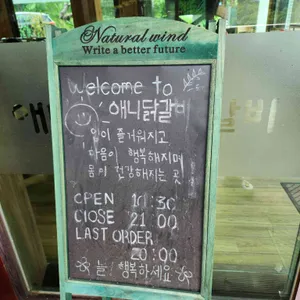 Natural wind
Write a better future
Welcome to
애니닭갈비
입이 즐거워지고
마음이 행복해지며
몸이 건강해지는 곳
OPEN 10:30
ClOSE 21:00
LAST ORDER
20:00
늘 행복하세요